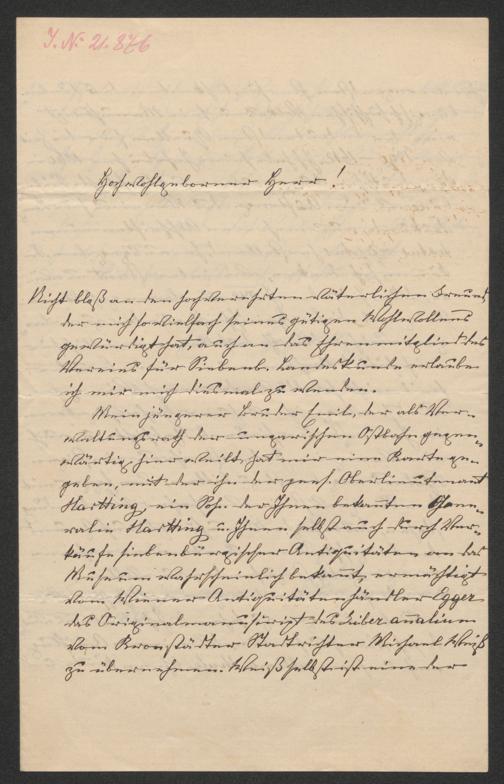 J. N. 21.876
Hochwohlgeborner Herr!
Nicht bloß an den hochverehrten väterlichen Freund,
der mich so vielfach seines gütigen Wohlwollens
gewürdigt hat, auch an das Ehrenmitglied des
Vereins für Siebenb. Landeskunde erlaube
ich mir mich diesmal zu wenden.
Mein jüngerer Bruder Emil, der als Ver-
waltungsrath der ungarischen Ostbahn gegen-
wärtig hier weilt, hat mir eine Karte ge-
geben, mit der ihn der pens. Oberlieutenant
Hartting, ein Sohn der Ihnen bekannten Gene-
ralin Hartting u. Ihnen selbst auch durch Ver-
käufe siebenbürgischer Antiquitäten an das
Museum wahrscheinlich bekannt, ermächtigt
vom Wiener Antiquitätenhändler Egger
das Originalmanuscript des Liber annalium
vom Kronstädter Stadtrichter Michael Weiß
zu übernehmen. Weiß selbst ist eine der